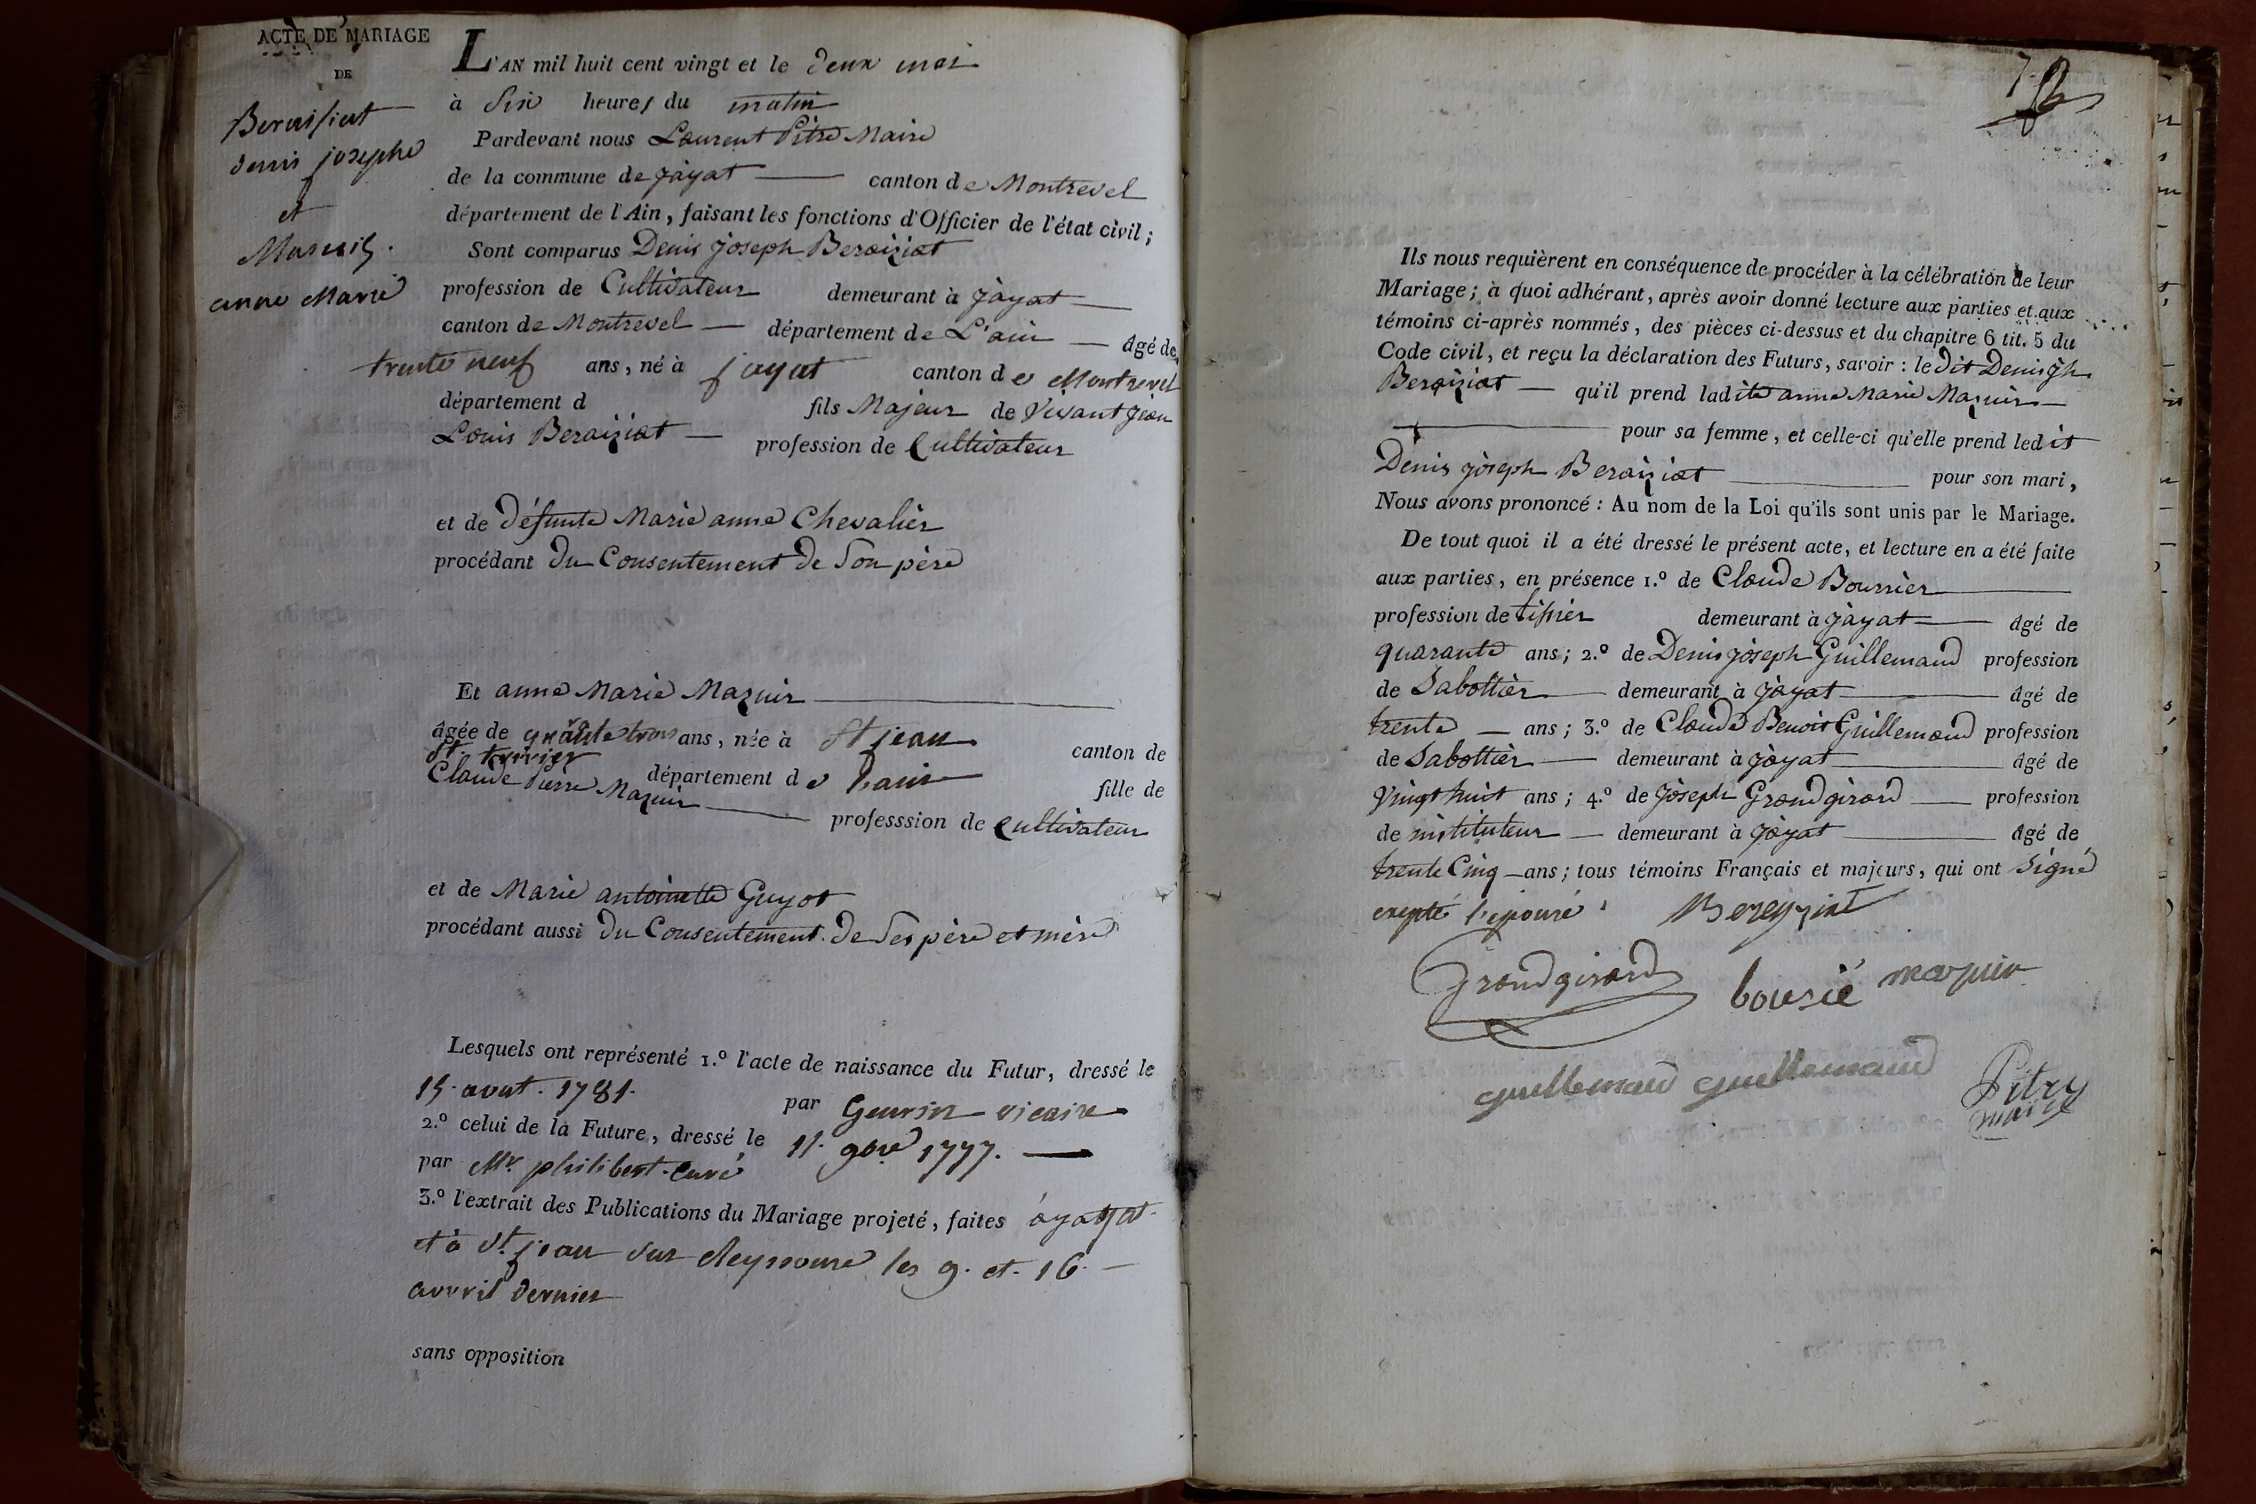 ACTE DE MARIAGE
DE
Beraisiat
denis josephe
et
Mazuis
anne Marie
L'AN mil huit cent vingt et le deux mai
à Six heures du matin
Pardevant nous Laurent Pitre Maire
de la commune de jàyat canton de Montrevel
département de l'Ain, faisant les fonctions d'Officier de l'état civil;
Sont comparus Denis joseph Beraiziat
profession de Cultivateur demeurant à jàyat
canton de Montrevel département de L'ain âgé de
trente neuf ans, né à jayat canton de Montrevel
département d fils Majeur de Vivant jean
Louis Beraiziat profession de Cultivateur
et de défunte Marie anne Chevalier
procédant du Consentement de Son père
Et anne Marie Mazuir
âgée de quarante trois ans, née à St jean canton de
St. trivier département de l'ain fille de
Claude Pierre Mazuir professsion de Cultivateur
et de Marie antoinette Guyot
procédant aussi du Consentement de Ses père et mère
Lesquels ont représenté 1.º l'acte de naissance du Futur, dressé le
15. avut. 1781. par Geurin vicaire
2.º celui de la Future, dressé le 11. 9bre 1777.
par Mr philibert. Curé
3.º l'extrait des Publications du Mariage projeté, faites à jayat
et à St. jean sur Reyssouse les 9. et. 16.
avvril dernier
sans opposition
Ils nous requièrent en conséquence de procéder à la célébration de leur
Mariage; à quoi adhérant, après avoir donné lecture aux parties et aux
témoins ci-après nommés, des pièces ci-dessus et du chapitre 6 tit. 5 du
Code civil, et reçu la déclaration des Futurs, savoir: le dit Denis jh
Beraiziat qu'il prend ladite anne Marie Mazuir
pour sa femme, et celle-ci qu'elle prend ledit
Denis joseph Beraiziat pour son mari,
Nous avons prononcé: Au nom de la Loi qu'ils sont unis par le Mariage.
De tout quoi il a été dressé le présent acte, et lecture en a été faite
aux parties, en présence 1.º de Claude Bourrier
profession de tissier demeurant à jàyat âgé de
quarante ans; 2.º de Denis joseph Guillemaud profession
de Sabottier demeurant à jàyat âgé de
trente ans; 3.º de Claude Benoit Guillemaud profession
de Sabottier demeurant à jàyat âgé de
Vingt huit ans; 4.º de joseph Grandgirard profession
de instituteur demeurant à jàyat âgé de
trente Cinq ans; tous témoins Français et majeurs, qui ont Signé
exepté l'epouse Bereyziat
Grandgirard bourié mazuir
guillemaud guillemaud Pitre
maire